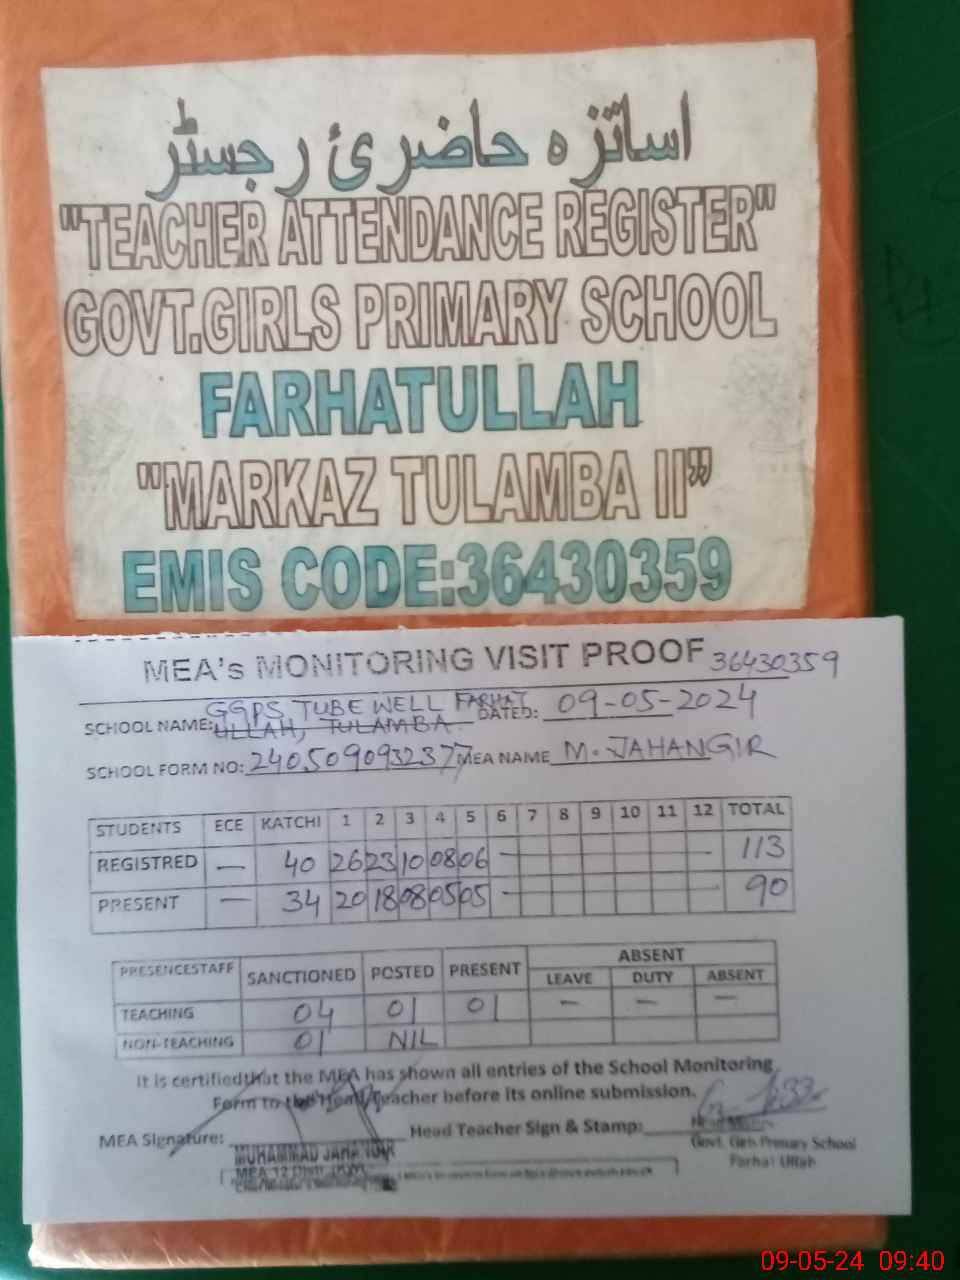 اساتزہ حاضری رجسٹر
"TEACHER ATTENDANCE REGISTER"
GOVT.GIRLS PRIMARY SCHOOL
FARHATULLAH
"MARKAZ TULAMBA II”
EMIS CODE:36430359
MEA's MONITORING VISIT PROOF 36430359
SCHOOL NAME: GGPS TUBE WELL FARHAT ULLAH, TULAMBA DATED: 09-05-2024
SCHOOL FORM NO: 2405090932377 MEA NAME M. JAHANGIR
STUDENTS ECE KATCHI 1 2 3 4 5 6 7 8 9 10 11 12 TOTAL
REGISTRED — 40 26 23 10 08 06 — 113
PRESENT — 34 20 18 08 05 05 — 90
PRESENCESTAFF SANCTIONED POSTED PRESENT ABSENT
LEAVE DUTY ABSENT
TEACHING 04 01 01 — — —
NON-TEACHING 01 NIL
It is certifiedthat the MEA has shown all entries of the School Monitoring
Form to the Head Teacher before its online submission.
MEA Signature: Head Teacher Sign & Stamp:
MUHAMMAD JAHANGIR
Govt. Girls Primary School
Farhat Ullah
09-05-24 09:40